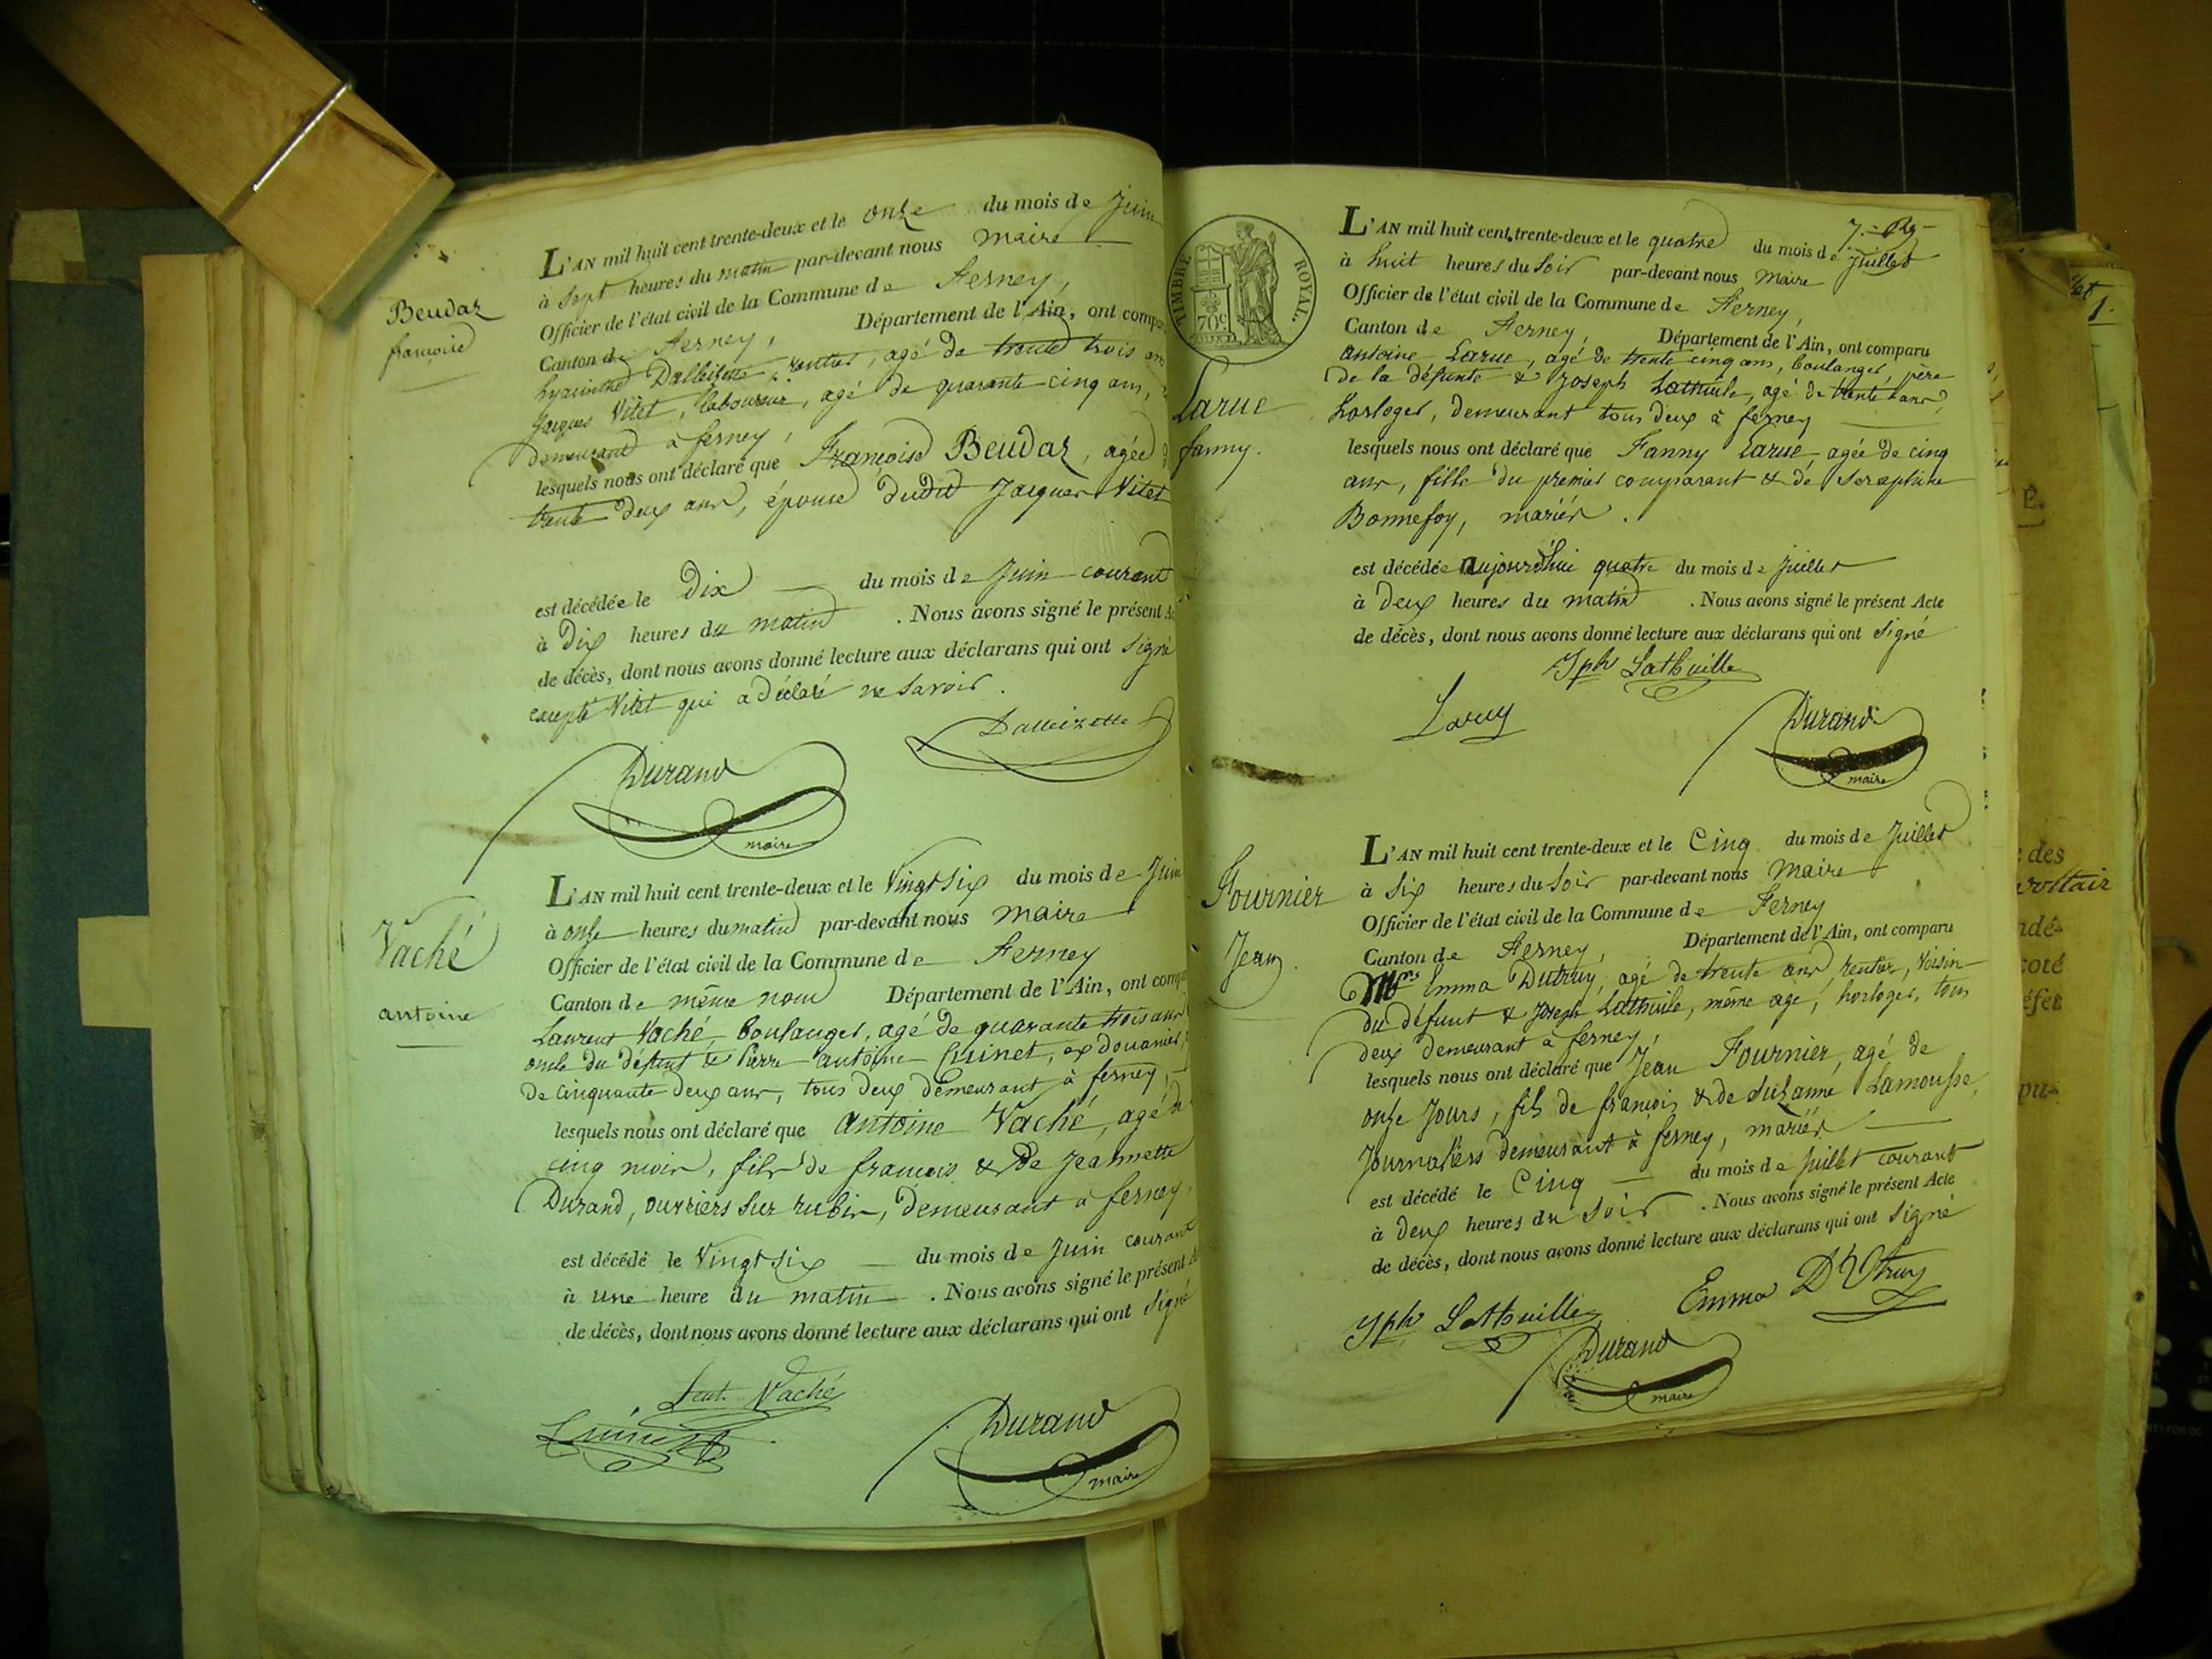 Beudaz
françoise
L'AN mil huit cent trente-deux et le onze du mois de Juin
à Sept heures du matin par-devant nous maire
Officier de l'état civil de la Commune de Ferney,
Canton de Ferney, Département de l'Ain, ont comp
hyacinthe Dalleizette, rentier, agé de trente trois ans
Jacques Vitet, laboureur, agé de quarante cinq ans,
demeurant à ferney,
lesquels nous ont déclaré que Françoise Beudaz, agée
trente deux ans, épouse dudit Jacques Vitet
est décédée le Dix du mois de Juin courant
à Dix heures du matin . Nous avons signé le présent
de décès, dont nous avons donné lecture aux déclarans qui ont signé
excepté Vitet qui a déclaré ne savoir.
Dalleizette
Durand
maire
Vaché
antoine
L'AN mil huit cent trente-deux et le Vingt six du mois de Juin
à onze heures du matin par-devant nous maire
Officier de l'état civil de la Commune de Ferney
Canton de même nom Département de l'Ain, ont comp
Laurent Vaché, boulanger, agé de quarante trois ans
oncle du défunt & Pierre antoine Guinet, ex douanier,
de cinquante deux ans, tous deux demeurant à ferney,
lesquels nous ont déclaré que antoine Vaché, agé de
cinq mois, fils de francois & de Jeannette
Durand, ouvriers sur rubis, demeurant à ferney,
est décédé le Vingt six du mois de Juin courant
à une heure du matin . Nous avons signé le présent
de décès, dont nous avons donné lecture aux déclarans qui ont signé
Vaché
Durand
maire
TIMBRE ROYAL.
70c
7.
L'AN mil huit cent trente-deux et le quatre du mois de Juillet
à huit heures du soir par-devant nous maire
Officier de l'état civil de la Commune de Ferney,
Canton de Ferney, Département de l'Ain, ont comparu
Larue
fanny.
antoine Larue, agé de trente cinq ans, boulanger, père
de la défunte & Joseph Lathuile, agé de trente ans,
horloger, demeurant tous deux à ferney
lesquels nous ont déclaré que Fanny Larue, agée de cinq
ans, fille du premier comparant & de Seraphine
Bonnefoy, mariés.
est décédée aujourd'hui quatre du mois de juillet
à deux heures du matin . Nous avons signé le présent Acte
de décès, dont nous avons donné lecture aux déclarans qui ont signé
Jph Lathuille
Laruy
Durand
maire
Fournier
Jean.
L'AN mil huit cent trente-deux et le Cinq du mois de Juillet
à Six heures du soir par-devant nous maire
Officier de l'état civil de la Commune de Ferney
Canton de Ferney, Département de l'Ain, ont comparu
Emma Dutruy, agé de trente ans rentier, voisin
du défunt & Joseph Lathuile, même age, horloger, tous
deux demeurant à ferney,
lesquels nous ont déclaré que Jean Fournier, agé de
onze Jours, fils de francois & de Suzanne Lamousse,
Journaliers demeurant à ferney, mariés
est décédé le Cinq du mois de Juillet courant
à deux heures du soir . Nous avons signé le présent Acte
de décès, dont nous avons donné lecture aux déclarans qui ont signé
Jph Lathuille
Emma DUtruy
Durand
maire
1.
É.
des
voltair
ndé-
coté
pu-